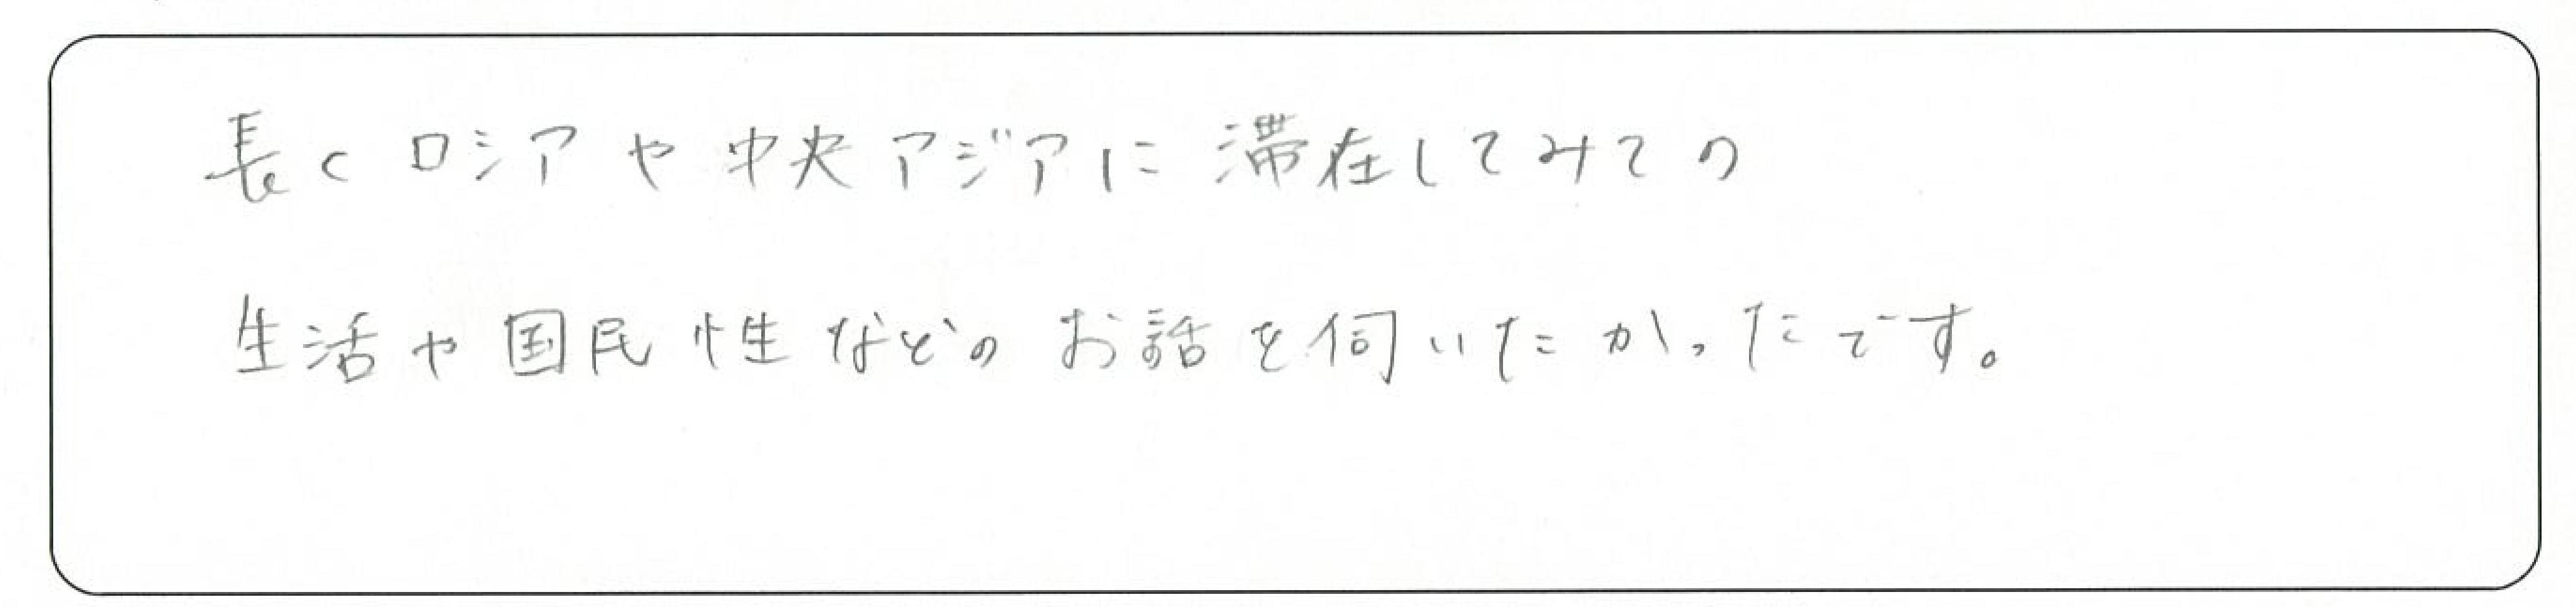 長くロシアや中央アジアに滞在してみての
生活や国民性などのお話を伺いたかったです。